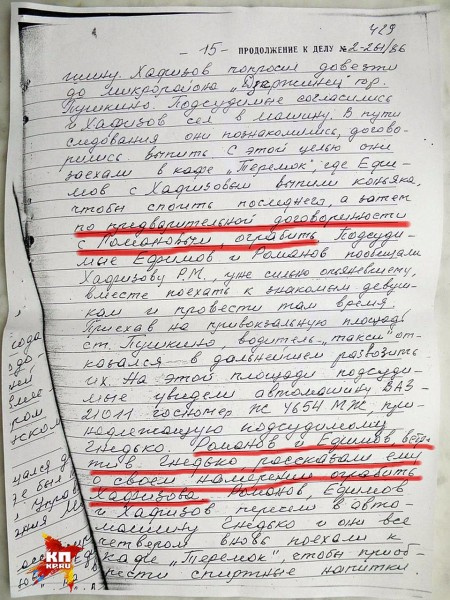 429
— 15 — ПРОДОЛЖЕНИЕ К ДЕЛУ № 2-261/86
шину. Хафизов попросил довезти
до микрорайона „Дзержинец" гор.
Пушкино. Подсудимые согласились
и Хафизов сел в машину. В пути
следования они познакомились, догово-
рились выпить. С этой целью они
заехали в кафе „Теремок", где Ефи-
мов с Хафизовым выпили коньяка,
чтобы споить последнего, а затем
по предварительной договоренности
с Романовым, ограбить. Подсуди-
мые Ефимов и Романов пообещали
Хафизову Р.М. уже сильно опьяневшему,
вместе поехать к знакомым девуш-
кам и провести там время.
Приехав на привокзальную площадь
ст. Пушкино, водитель „такси" от-
казался в дальнейшем развозить
их. На этой площади подсуди-
мые увидели автомашину ВАЗ-
21011 госномер Ж 4654 МЖ, при-
надлежащую подсудимому
Гнедько. Романов и Ефимов, встре-
тив Гнедько, рассказали ему
о своем намерении ограбить
Хафизова. Романов, Ефимов
и Хафизов пересели в авто-
машину Гнедько и они все
четвером вновь поехали к
кафе „Теремок", чтобы приоб-
рести спиртные напитки.
КП
KP.RU